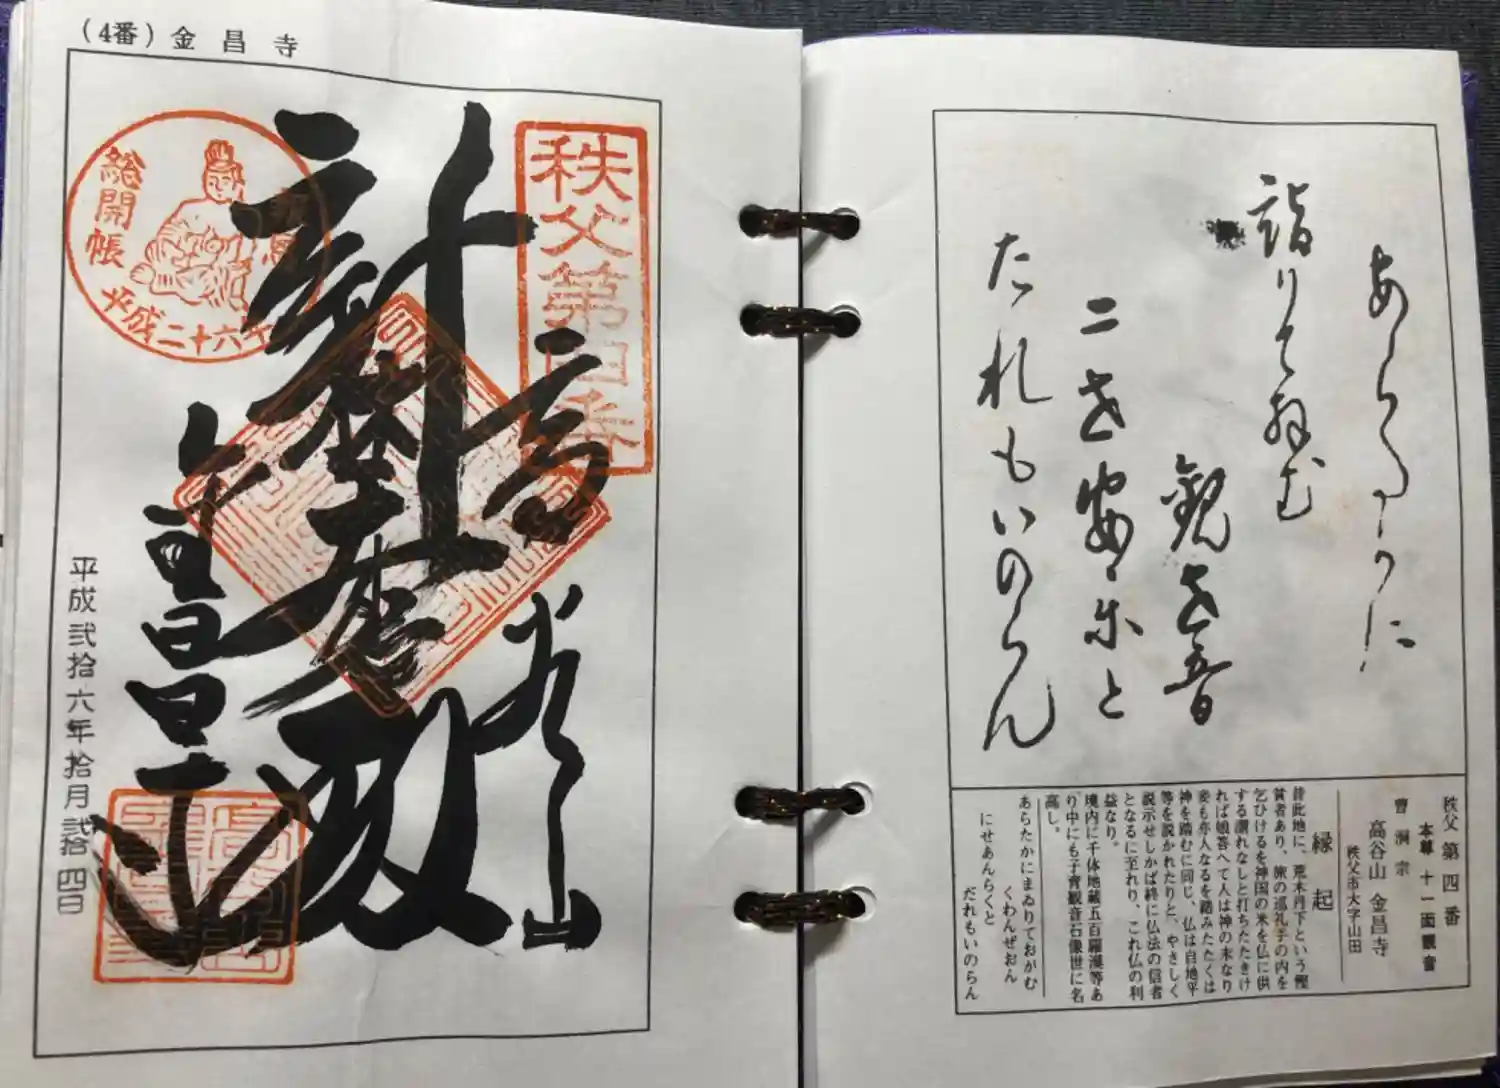 あらたかに
詣りておがむ
観世音
二世安楽と
たれもいのらん
秩父第四番
本尊 十一面観音
曹洞宗
高谷山 金昌寺
秩父市大字山田
縁起
昔此地に、荒木丹下という慳
貪者あり、旅の巡礼子の内を
乞ひけるを神国の米を仏に供
する謂れなしと打ちたたきけ
れば娘答へて人は神の末なり
妾も亦人なるを踏みたたくは
神を踏むに同じ、仏は自地平
等を説かれたりと、やさしく
説示せしかば終に仏法の信者
となるに至れり、これ仏の利
益なり。
境内に千体地蔵五百羅漢等あ
り中にも子育観音石像世に名
高し。
あらたかにまゐりておがむ
くわんぜおん
にせあんらくと
だれもいのらん
(4番) 金昌寺
秩父第四番
高谷山
総開帳
平成二十六年
金昌寺
平成弐拾六年拾月弐拾四日